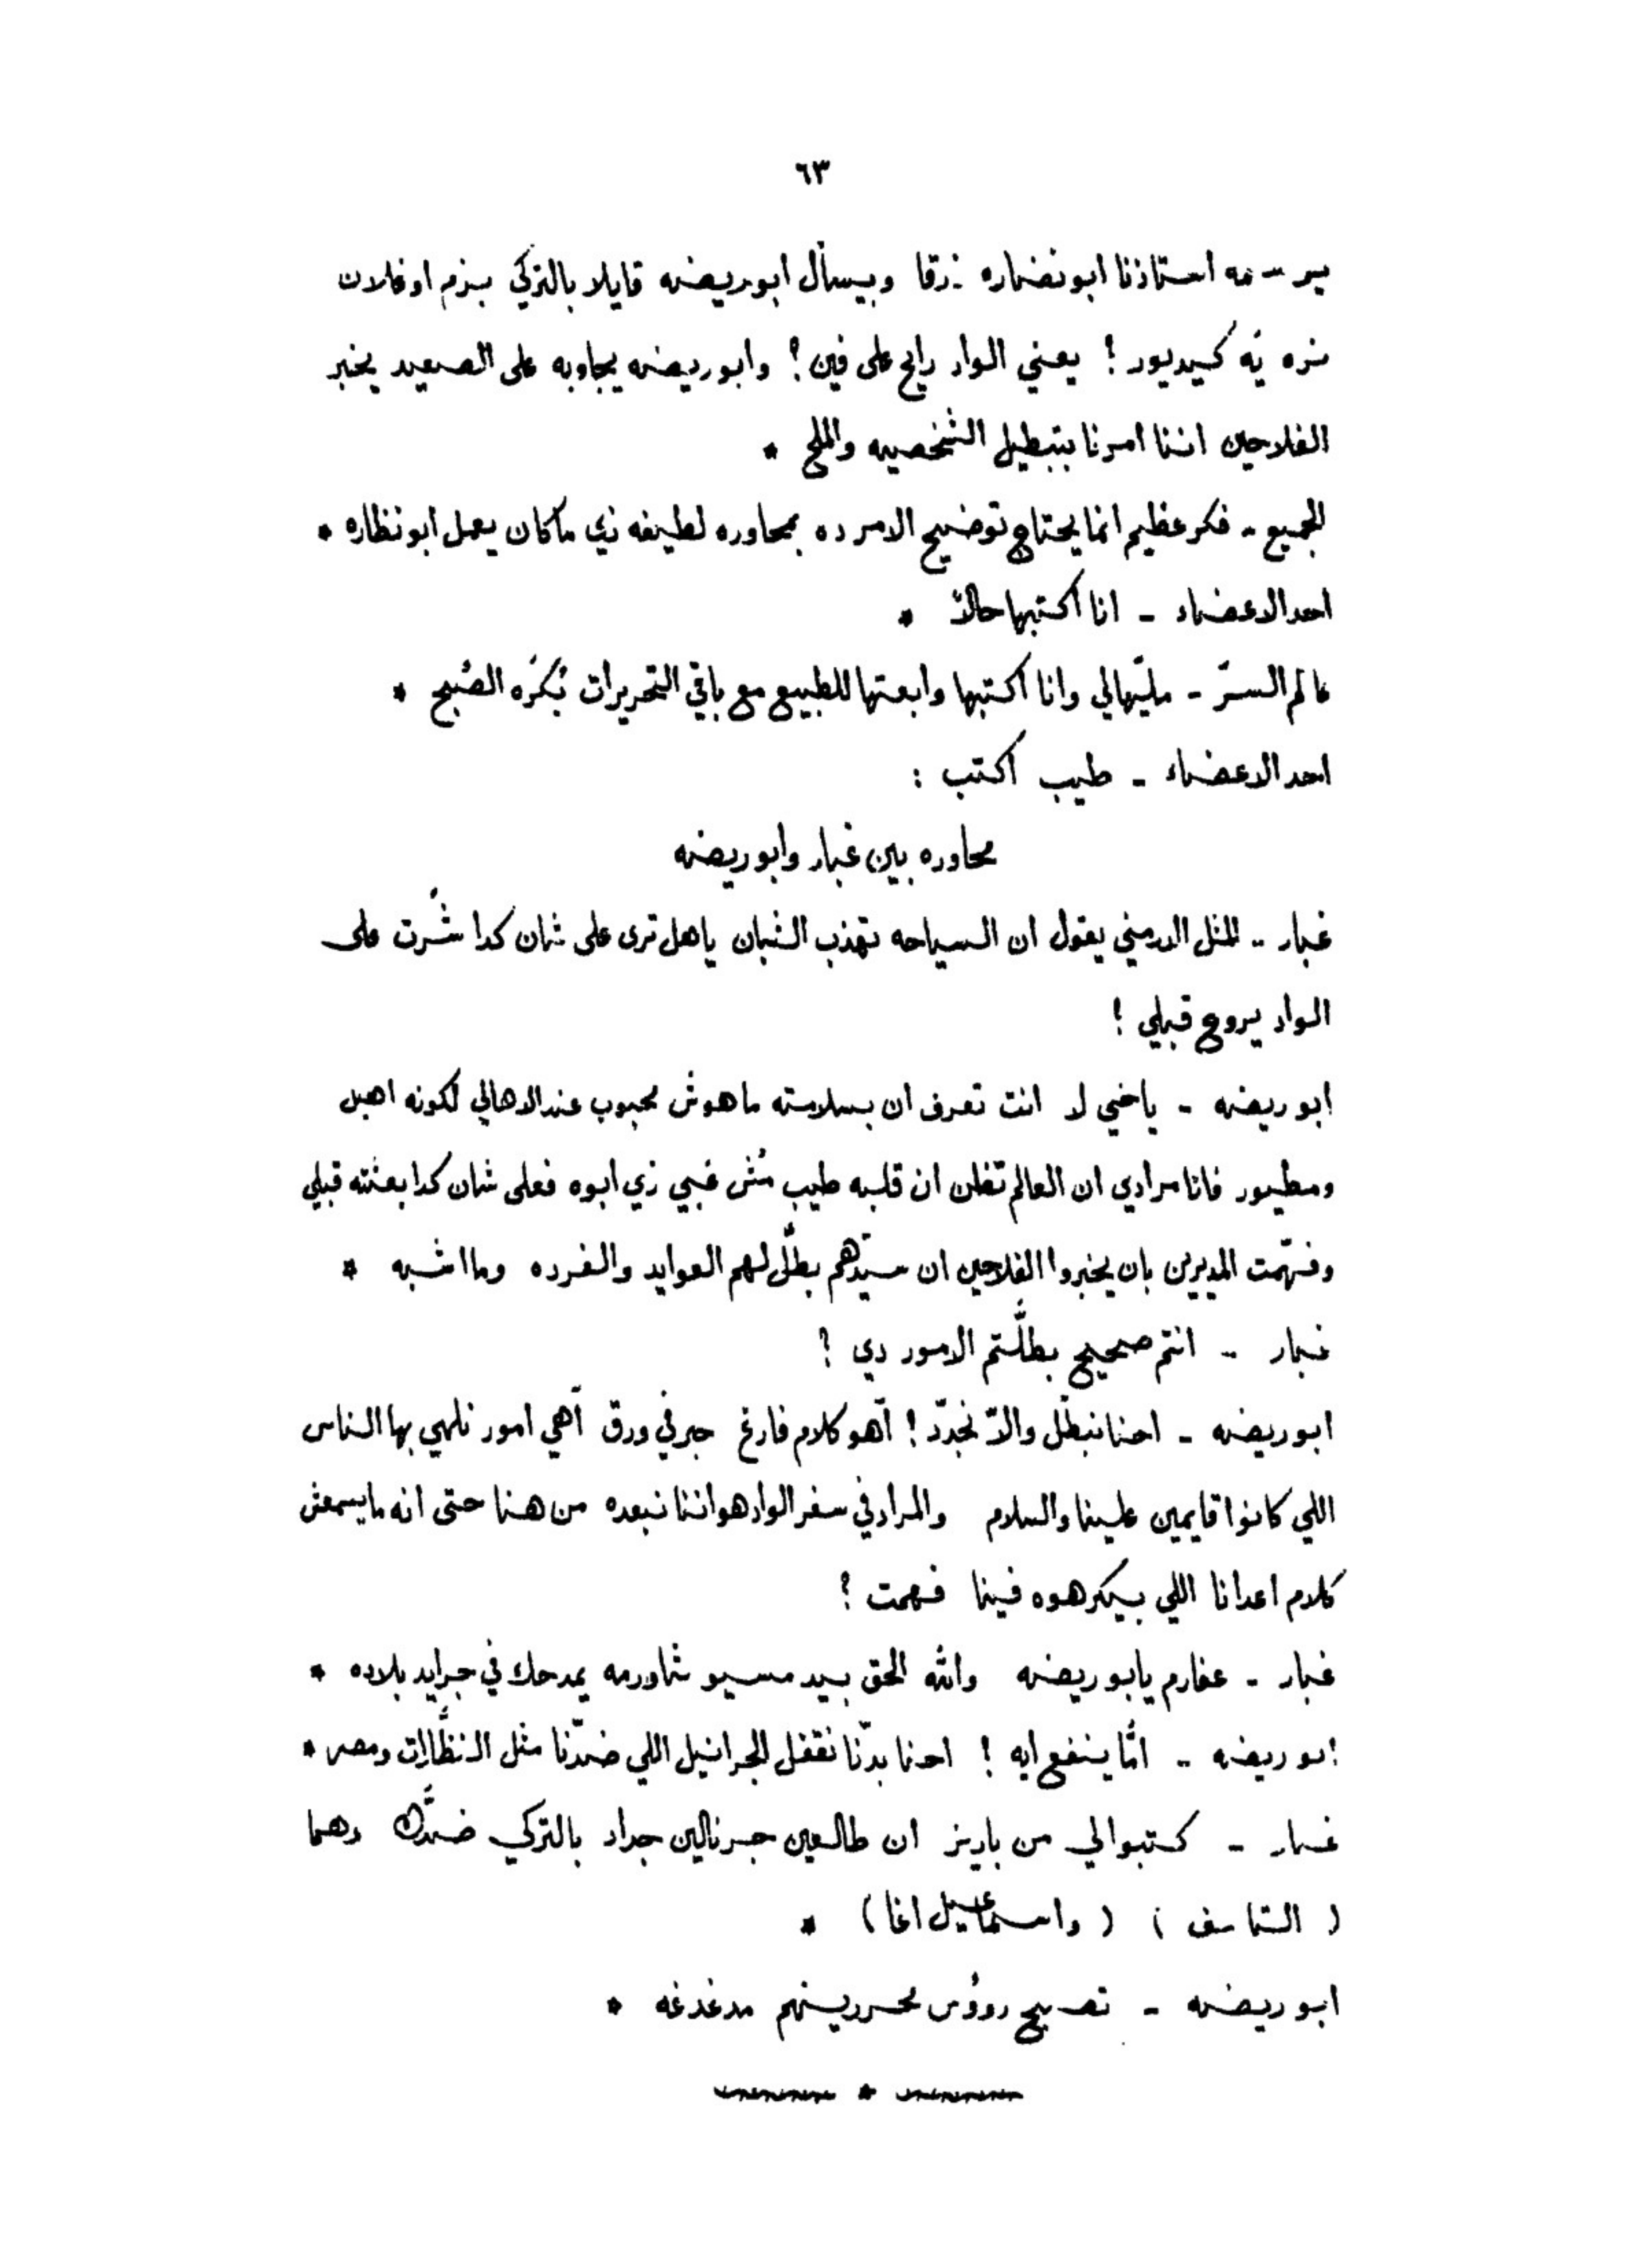 ٦٣
يرسمه استاذنا ابو نضاره زرقا وبيسأل ابو ريضه قايلا بالتركي بزم اوغلان
نره يه كيديور ! يعني الواد رايح على فين ؟ وابو ريضه يجاوبه على الصعيد يخبر
الفلاحين اننا امرنا بتبطيل الشخصيه والملح *
الجميع - فكر عظيم انما يحتاج توضيح الامر ده بمحاوره لطيفه زي ما كان يعمل ابو نظاره *
احد الاعضاء - انا اكتبها حالاً *
عالم السرّ - مليّهالي وانا اكتبها وابعتها للطبيع مع باقي التحريرات بُكرَه الصُبح *
احد الاعضاء - طيب اكتب :
محاوره بين غبار وابو ريضه
غبار - المثل الارمني يقول ان السياحه تهذب الشبان ياهل ترى على شان كدا شُرت على
الواد يروح قبلي !
ابو ريضه - ياخي لا انت تعرف ان بسلامته ما هوش محبوب عند الاهالي لكونه اهبل
ومطيور فانا مرادي ان العالم تظن ان قلبه طيب مُش غبي زي ابوه فعلى شان كدا بعثته قبلي
وفهّمت المديرين بان يخبروا الفلاحين ان سيّدهم بطّل لهم العوايد والفرده وما اشبه *
غبار - انتم صحيح بطلَّتم الامور دي ؟
ابو ريضه - احنا نبطّل والاّ نجدّد ! آهو كلام فارغ حبر في ورق آهي امور نلهي بها الناس
اللي كانوا قايمين علينا والسلام والمراد في سفر الواد هو اننا نبعده من هنا حتى انه ما يسمعش
كلام اعدانا اللي بيكرهوه فينا فهمت ؟
غبار - عفارم يابو ريضه والله الحق بيد مسيو شاورمه يمدحك في جرايد بلاده *
ابو ريضه - امّا ينفع ايه ! احنا بدّنا نقفل الجرانيل اللي ضدّنا مثل النظَّارات ومصر *
غبار - كتبوا لي من باريز ان طالعين جرنالين جداد بالتركي ضدَّك وهما
( الشاسف ) ( واسماعيل اغا ) *
ابو ريضه - تصبح رووُس محررينهم مدغدغه *